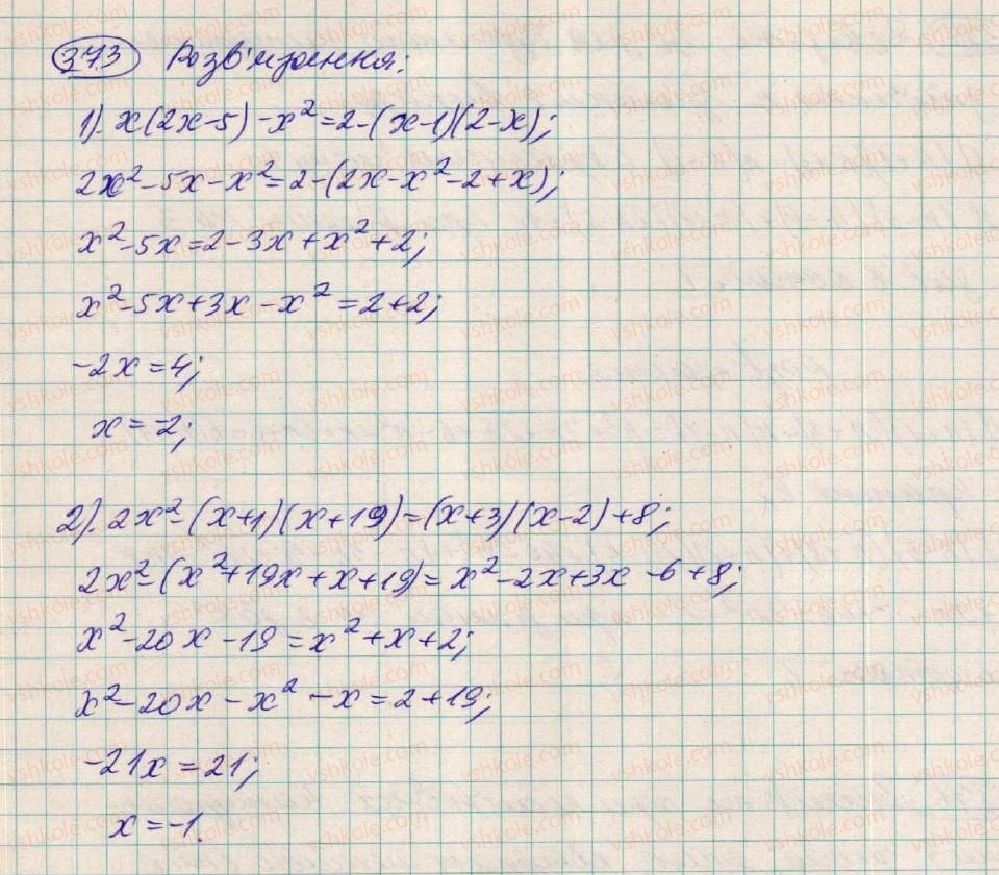 373 Розв'язання:
1). x(2x-5)-x²=2-(x-1)(2-x);
2x²-5x-x²=2-(2x-x²-2+x);
x²-5x=2-3x+x²+2;
x²-5x+3x-x²=2+2;
-2x=4;
x=-2;
2). 2x²-(x+1)(x+19)=(x+3)(x-2)+8;
2x²-(x²+19x+x+19)=x²-2x+3x-6+8;
x²-20x-19=x²+x+2;
x²-20x-x²-x=2+19;
-21x=21;
x=-1.
vshkole.com